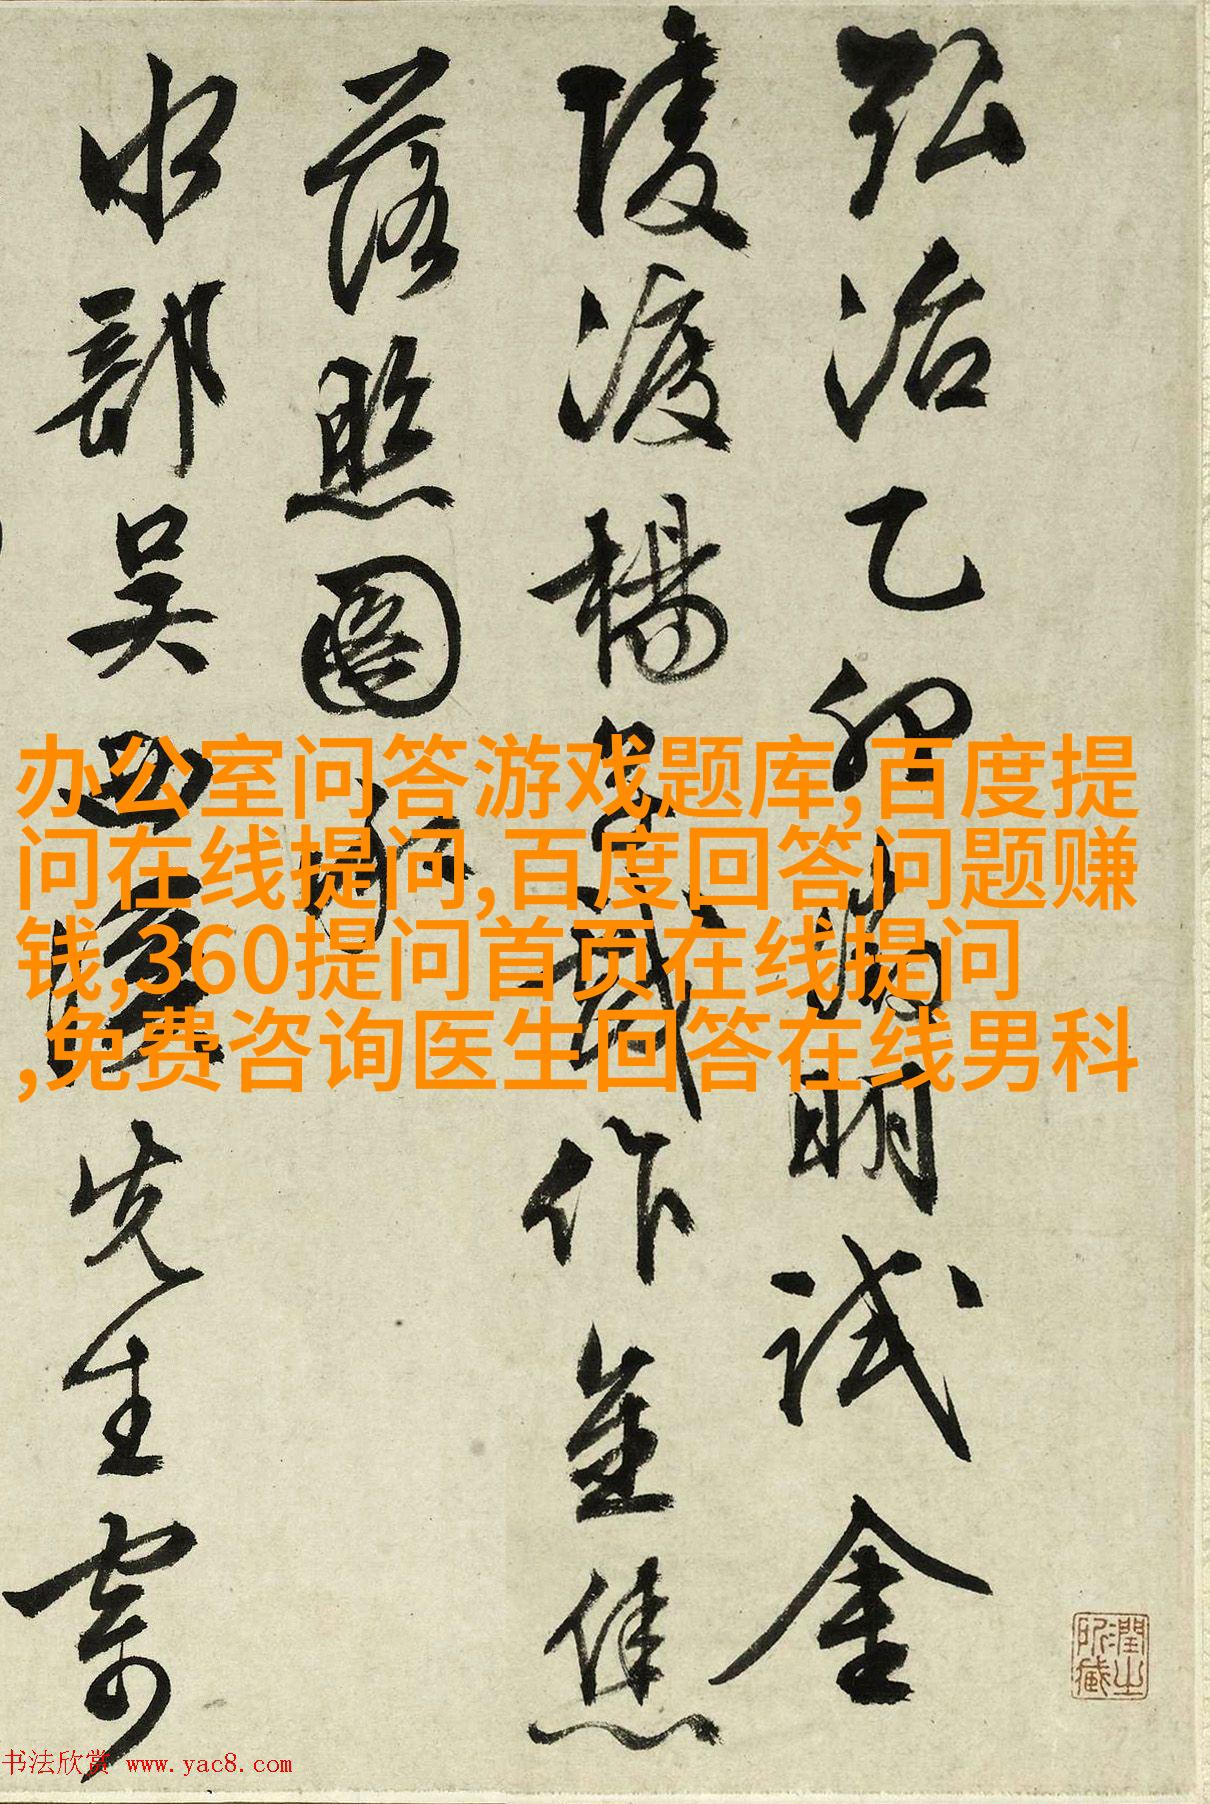 弘治乙卯徵明試金
陵渡楊戲作金焦
落照圖
水部吳西先生寄
办公室问答游戏题库,百度提
问在线提问,百度回答问题赚
钱,360提问首页在线提问
,免费咨询医生回答在线男科
潤之
所藏
书法欣赏 www.yac8.com